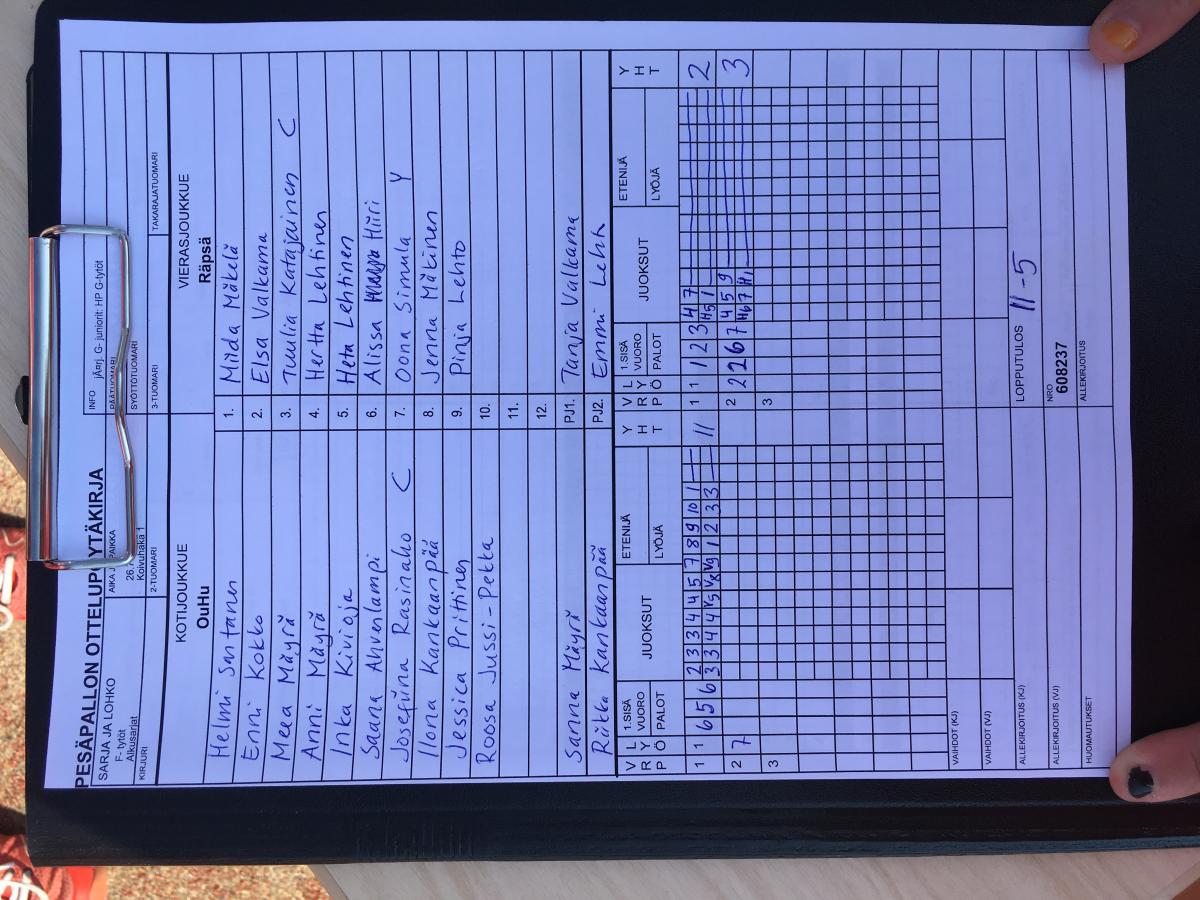 PESÄPALLON OTTELUPÖYTÄKIRJA
SARJA JA LOHKO
F- tytöt
Alkusarjat
KIRJURI
AIKA JA PAIKKA
Koivuhaka 1
2-TUOMARI
INFO jÃ¤rj. G- juniorit: HP G-tytöt
PÄÄTUOMARI
SYÖTTÖTUOMARI
3-TUOMARI
TAKARAJATUOMARI
KOTIJOUKKUE
OuHu
VIERASJOUKKUE
Räpsä
Helmi Santanen 1. Miida Mäkelä
Enni Kokko 2. Elsa Valkama
Meea Mäyrä 3. Tuulia Katajainen C
Anni Mäyrä 4. Hertta Lehtinen
Inka Kivioja 5. Heta Lehtinen
Saana Ahvenlampi 6. Alissa Hiiri
Josefiina Rasinaho C 7. Oona Simula Y
Ilona Kankaanpää 8. Jenna Mäkinen
Jessica Prittinen 9. Pinja Lehto
Roosa Jussi-Pekka 10.
11.
12.
Sanna Mäyrä PJ1. Tanja Valkama
Riikka Kankaanpää PJ2. Emmi Leht
VRP LYÖ 1.SISÄ VUORO PALOT JUOKSUT ETENIJÄ LYÖJÄ YHT VRP LYÖ 1.SISÄ VUORO PALOT JUOKSUT ETENIJÄ LYÖJÄ YHT
1 1 6 5 6 2 3 3 4 4 5 7 8 9 10 1 11 1 1 1 2 3 4 7 2
3 3 4 4 1 2 3 3
2 7 2 2 2 6 7 4 5 9 3
3 3
VAIHDOT (KJ)
VAIHDOT (VJ)
ALLEKIRJOITUS (KJ) LOPPUTULOS 11-5
ALLEKIRJOITUS (VJ) NRO 608237
HUOMAUTUKSET ALLEKIRJOITUS